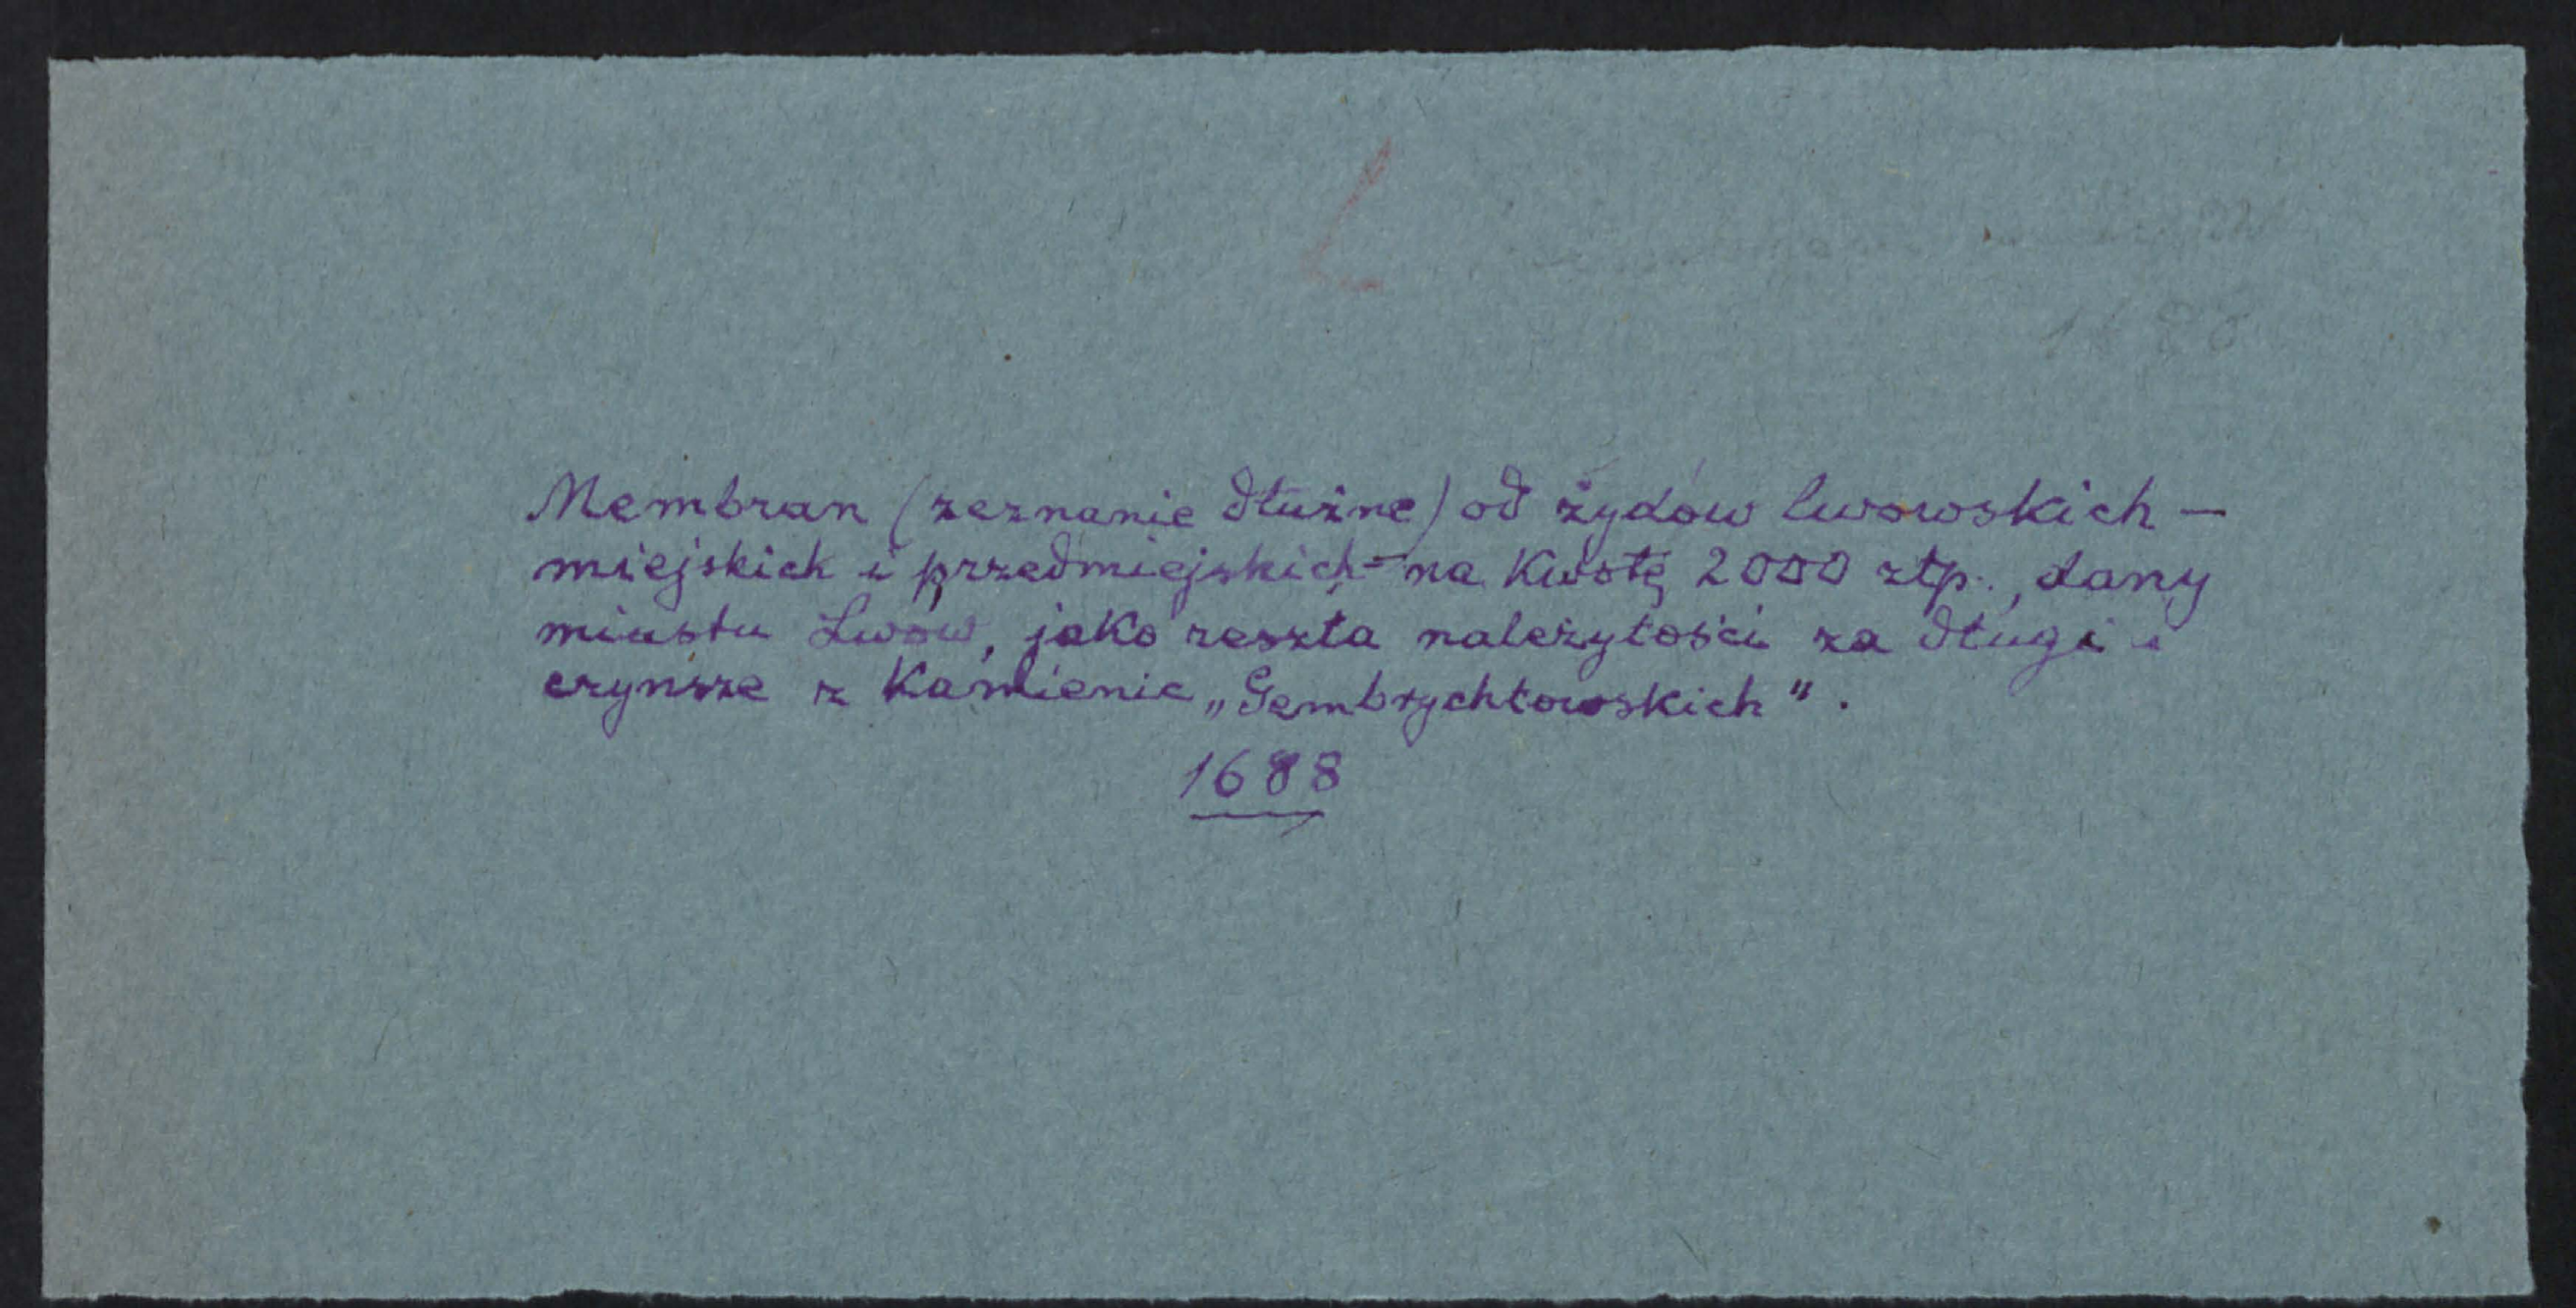 1688
Membran (zeznanie dłużne) od żydów lwowskich –
miejskich i przedmiejskich – na kwotę 2000 złp., dany
miastu Lwów, jako reszta należytości za długi i
czynsze z Kamienic „Gembrychtowskich".
1688